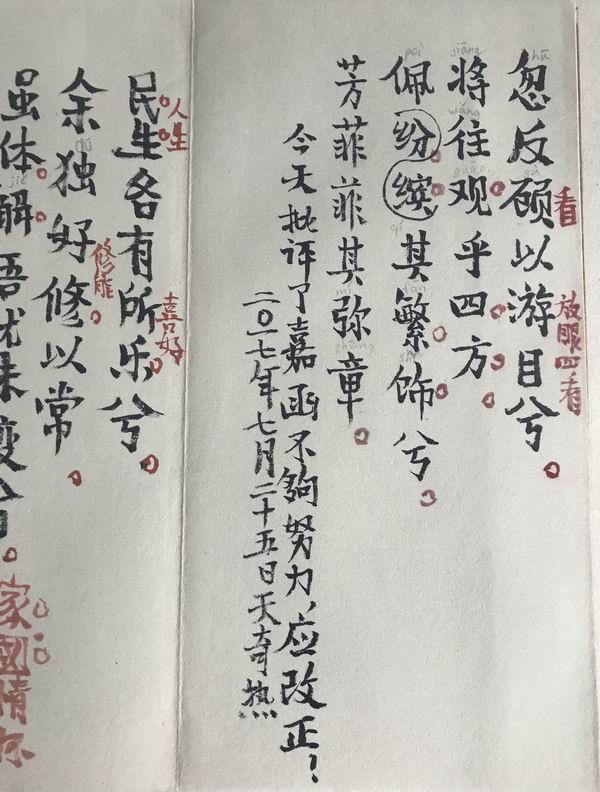 忽反顾以游目兮
看
放眼四看
将往观乎四方
佩缤纷其繁饰兮
芳菲菲其弥章
今天批评了嘉函不够努力，应改正！
二〇一七年七月二十五日天奇热
民生各有所乐兮
人生
喜好
余独好修以常
修能
虽体解吾犹未变兮
家国情怀